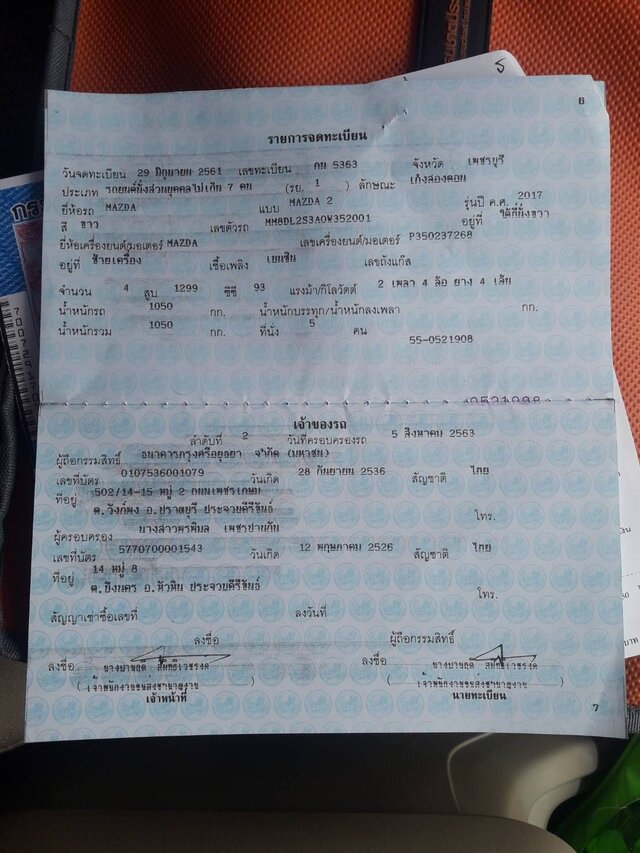 6
รายการจดทะเบียน
วันจดทะเบียน 29 มิถุนายน 2561 เลขทะเบียน กน 5363 จังหวัด เพชรบุรี
ประเภท รถยนต์นั่งส่วนบุคคลไม่เกิน 7 คน (รย. 1) ลักษณะ เก๋งสองตอน
ยี่ห้อรถ MAZDA แบบ MAZDA 2 รุ่นปี ค.ศ. 2017
สี ขาว เลขตัวรถ MM8DL2S3A0W352001 อยู่ที่ ใต้ที่นั่งขวา
ยี่ห้อเครื่องยนต์/มอเตอร์ MAZDA เลขเครื่องยนต์/มอเตอร์ P350237268
อยู่ที่ ซ้ายเครื่อง เชื้อเพลิง เบนซิน เลขถังแก๊ส
จำนวน 4 สูบ 1299 ซีซี 93 แรงม้า/กิโลวัตต์ 2 เพลา 4 ล้อ ยาง 4 เส้น
น้ำหนักรถ 1050 กก. น้ำหนักบรรทุก/น้ำหนักลงเพลา กก.
น้ำหนักรวม 1050 กก. ที่นั่ง 5 คน
55-0521908
เจ้าของรถ
ลำดับที่ 2 วันที่ครอบครองรถ 5 สิงหาคม 2563
ผู้ถือกรรมสิทธิ์ ธนาคารกรุงศรีอยุธยา จำกัด (มหาชน)
เลขที่บัตร 0107536001079 วันเกิด 28 กันยายน 2536 สัญชาติ ไทย
ที่อยู่ 502/14-15 หมู่ 2 ถนนเพชรเกษม
ต.วังก์พง อ.ปราณบุรี ประจวบคีรีขันธ์ โทร.
ผู้ครอบครอง นางสาวพรพิมล เพชรปานกัน
เลขที่บัตร 5770700001543 วันเกิด 12 พฤษภาคม 2526 สัญชาติ ไทย
ที่อยู่ 14 หมู่ 8
ต.บึงนคร อ.หัวหิน ประจวบคีรีขันธ์ โทร.
สัญญาเช่าซื้อเลขที่ ลงวันที่
ลงชื่อ ผู้ถือกรรมสิทธิ์
ลงชื่อ ลงชื่อ
เจ้าหน้าที่ นายทะเบียน
7